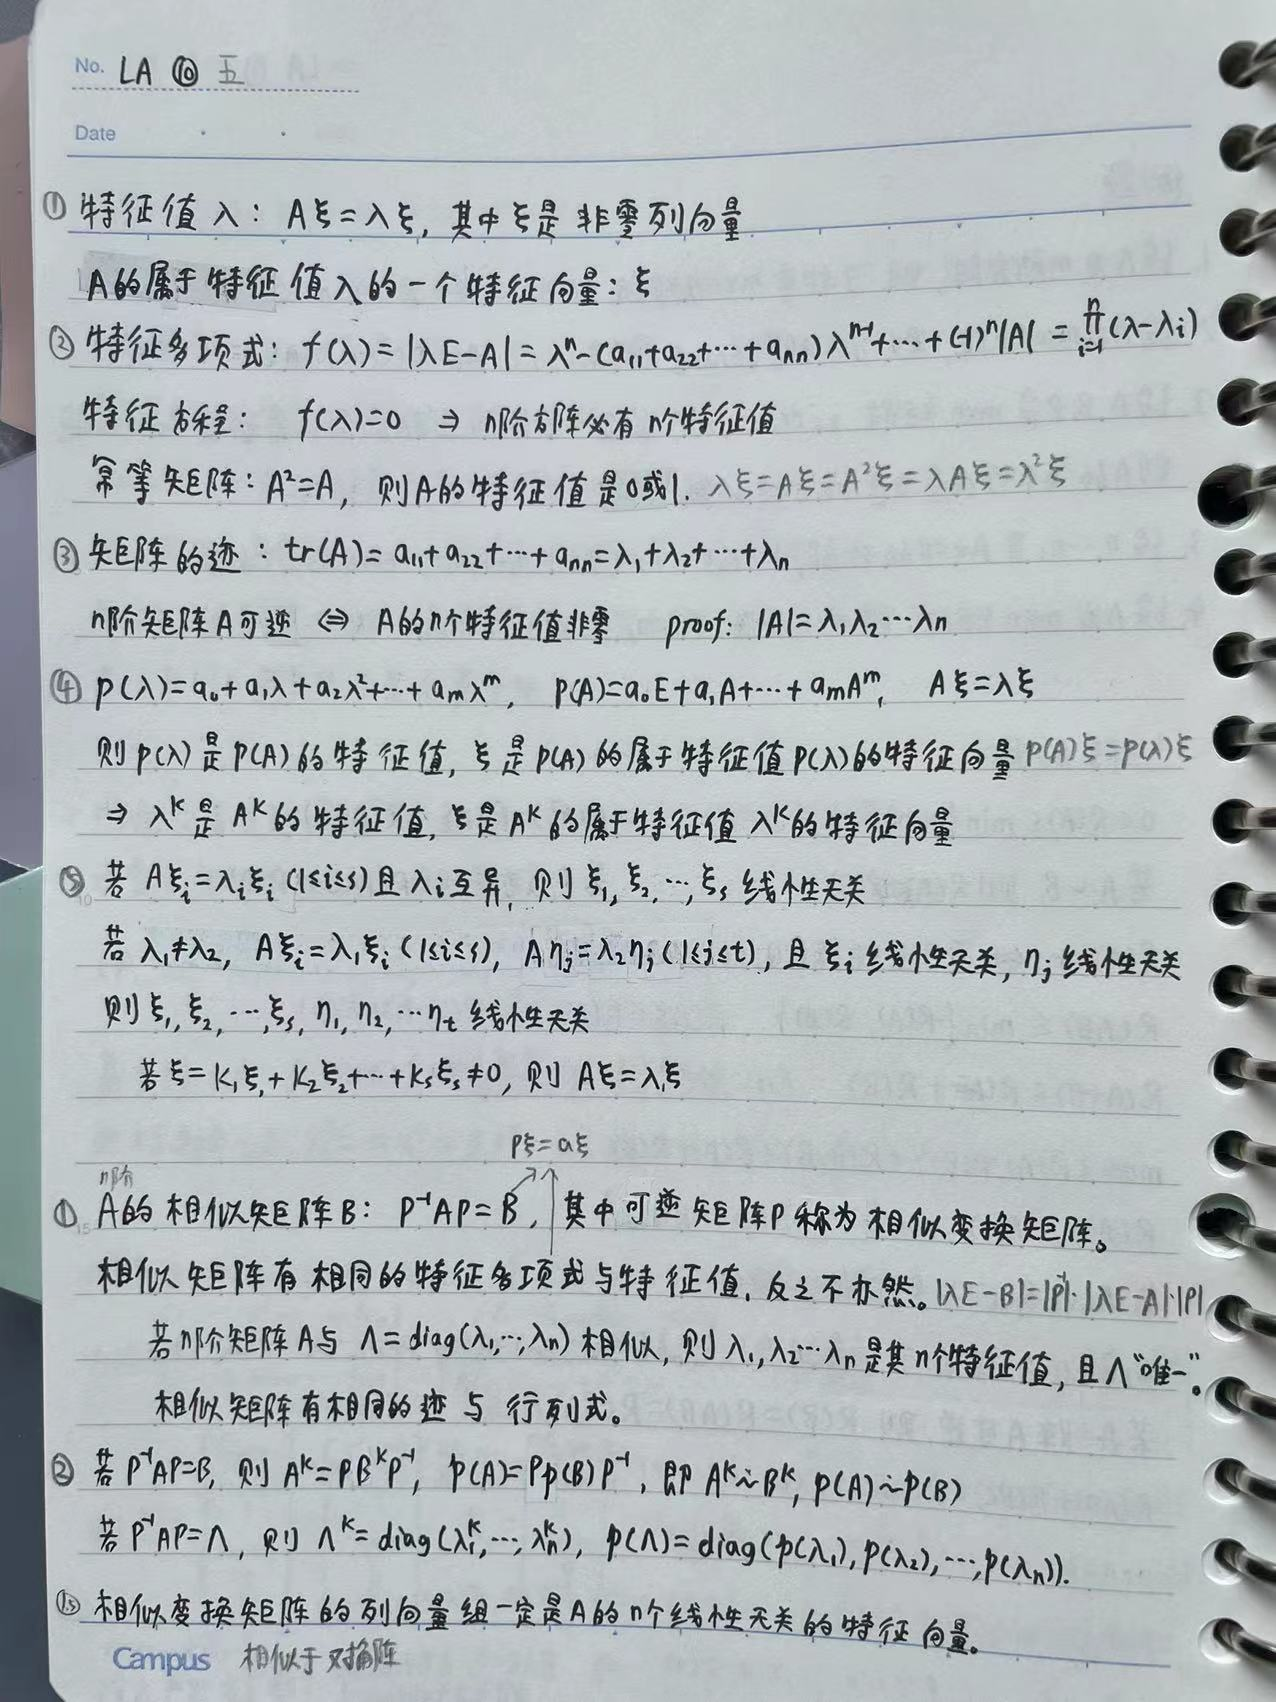 No. LA ⑩ 五
Date
① 特征值λ: Aξ=λξ, 其中ξ是非零列向量
A的属于特征值λ的一个特征向量: ξ
② 特征多项式: f(λ)=|λE-A|=λⁿ-(a₁₁+a₂₂+⋯+aₙₙ)λⁿ⁻¹+⋯+(-1)ⁿ|A| = ∏ᵢ₌₁ⁿ(λ-λᵢ)
特征方程: f(λ)=0 ⇒ n阶方阵必有n个特征值
幂等矩阵: A²=A, 则A的特征值是0或1. λξ=Aξ=A²ξ=λAξ=λ²ξ
③ 矩阵的迹: tr(A)=a₁₁+a₂₂+⋯+aₙₙ=λ₁+λ₂+⋯+λₙ
n阶矩阵A可逆 ⇔ A的n个特征值非零 proof: |A|=λ₁λ₂⋯λₙ
④ p(λ)=a₀+a₁λ+a₂λ²+⋯+aₘλᵐ, p(A)=a₀E+a₁A+⋯+aₘAᵐ, Aξ=λξ
则p(λ)是p(A)的特征值, ξ是p(A)的属于特征值p(λ)的特征向量 p(A)ξ=p(λ)ξ
⇒ λᵏ是Aᵏ的特征值, ξ是Aᵏ的属于特征值λᵏ的特征向量
⑤ 若Aξᵢ=λᵢξᵢ(1≤i≤s)且λᵢ互异, 则ξ₁,ξ₂,⋯,ξₛ线性无关
若λ₁≠λ₂, Aξᵢ=λ₁ξᵢ(1≤i≤s), Aηⱼ=λ₂ηⱼ(1≤j≤t), 且ξᵢ线性无关, ηⱼ线性无关
则ξ₁,ξ₂,⋯,ξₛ,η₁,η₂,⋯ηₜ线性无关
若ξ=k₁ξ₁+k₂ξ₂+⋯+kₛξₛ≠0, 则Aξ=λ₁ξ
Pξ=aξ
n阶
① A的相似矩阵B: P⁻¹AP=B, 其中可逆矩阵P称为相似变换矩阵。
相似矩阵有相同的特征多项式与特征值, 反之不亦然。|λE-B|=|P⁻¹|·|λE-A|·|P|
若n阶矩阵A与Λ=diag(λ₁,⋯,λₙ)相似, 则λ₁,λ₂⋯λₙ是其n个特征值, 且Λ“唯一”。
相似矩阵有相同的迹与行列式。
② 若P⁻¹AP=B, 则Aᵏ=PBᵏP⁻¹, p(A)=Pp(B)P⁻¹, 即Aᵏ~Bᵏ, p(A)~p(B)
若P⁻¹AP=Λ, 则Λᵏ=diag(λ₁ᵏ,⋯,λₙᵏ), p(Λ)=diag(p(λ₁),p(λ₂),⋯,p(λₙ)).
相似变换矩阵的列向量组一定是A的n个线性无关的特征向量。
Campus 相似于对角阵